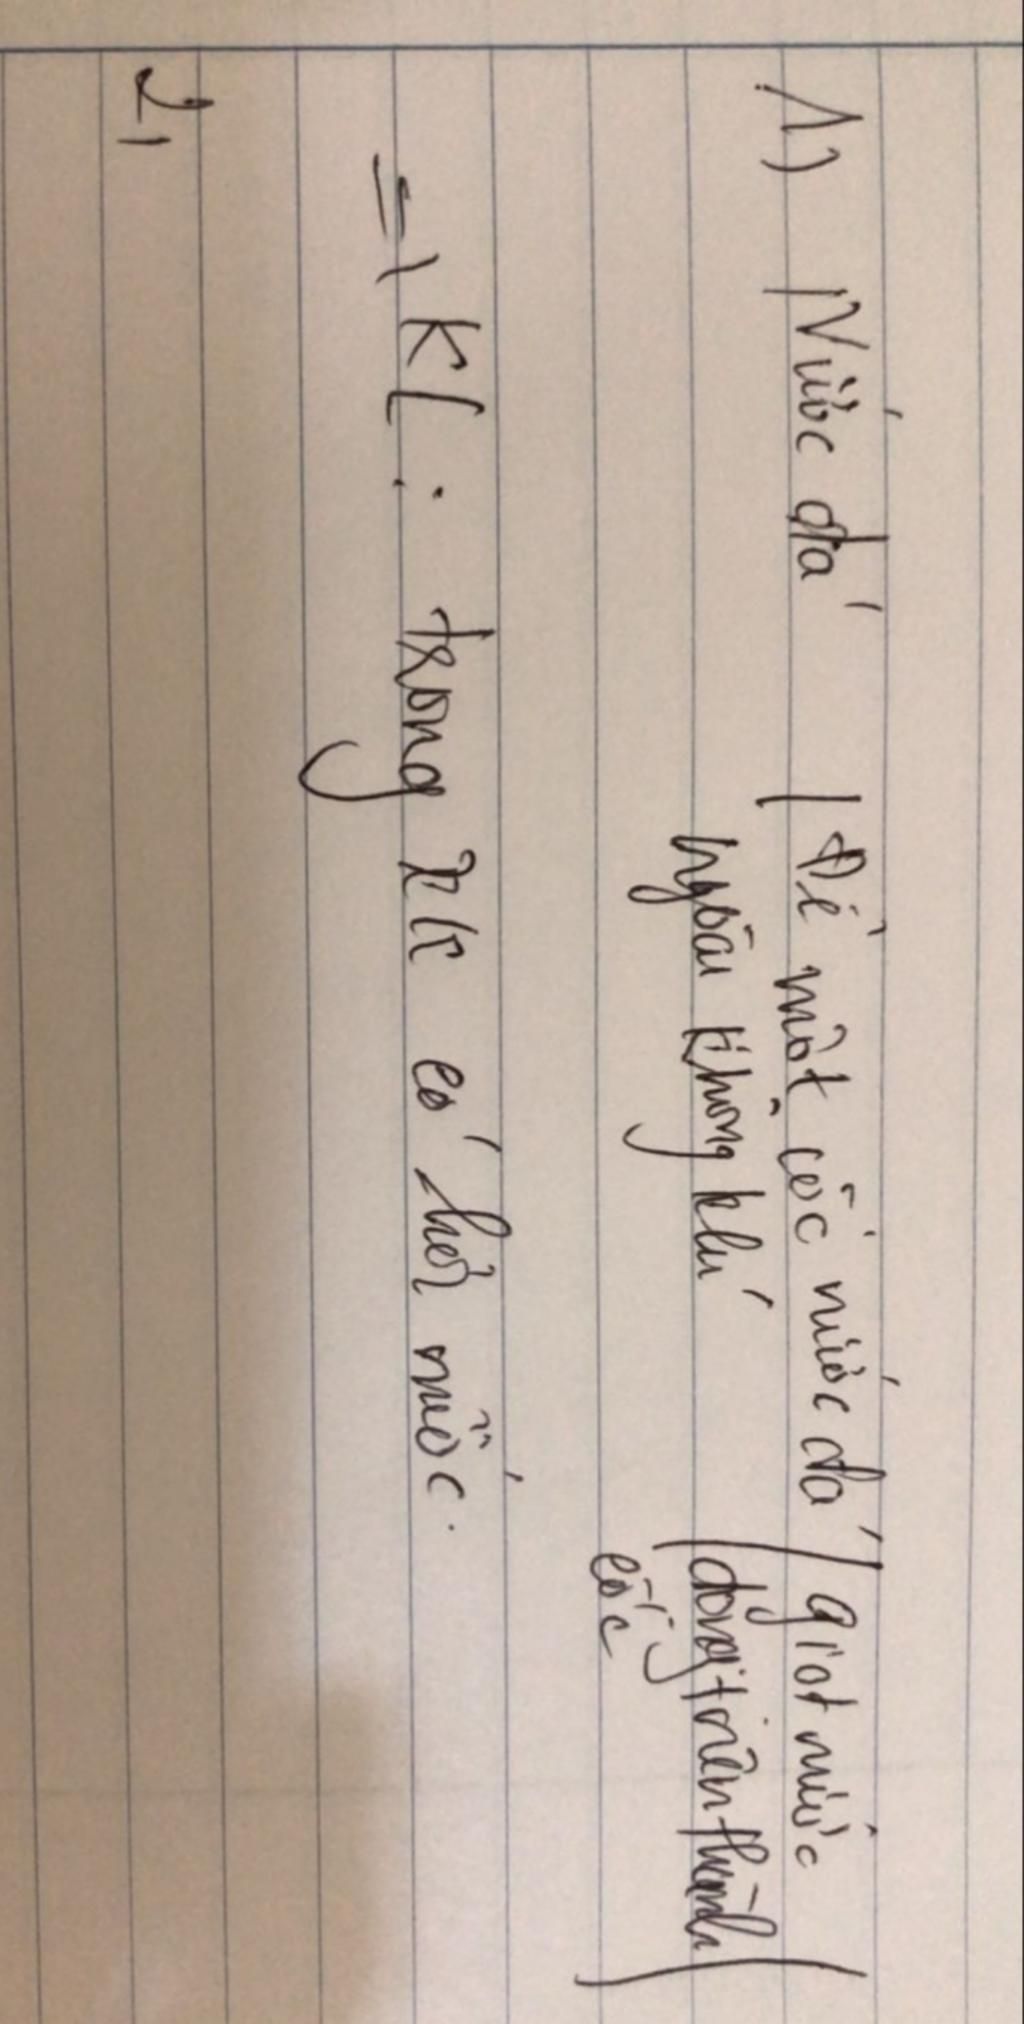 1) Nước đá | Để một cốc nước đá | giọt nước
ngoài không khí | đọng trên thành
cốc
=> KL : trong kk có hơi nước.
2,